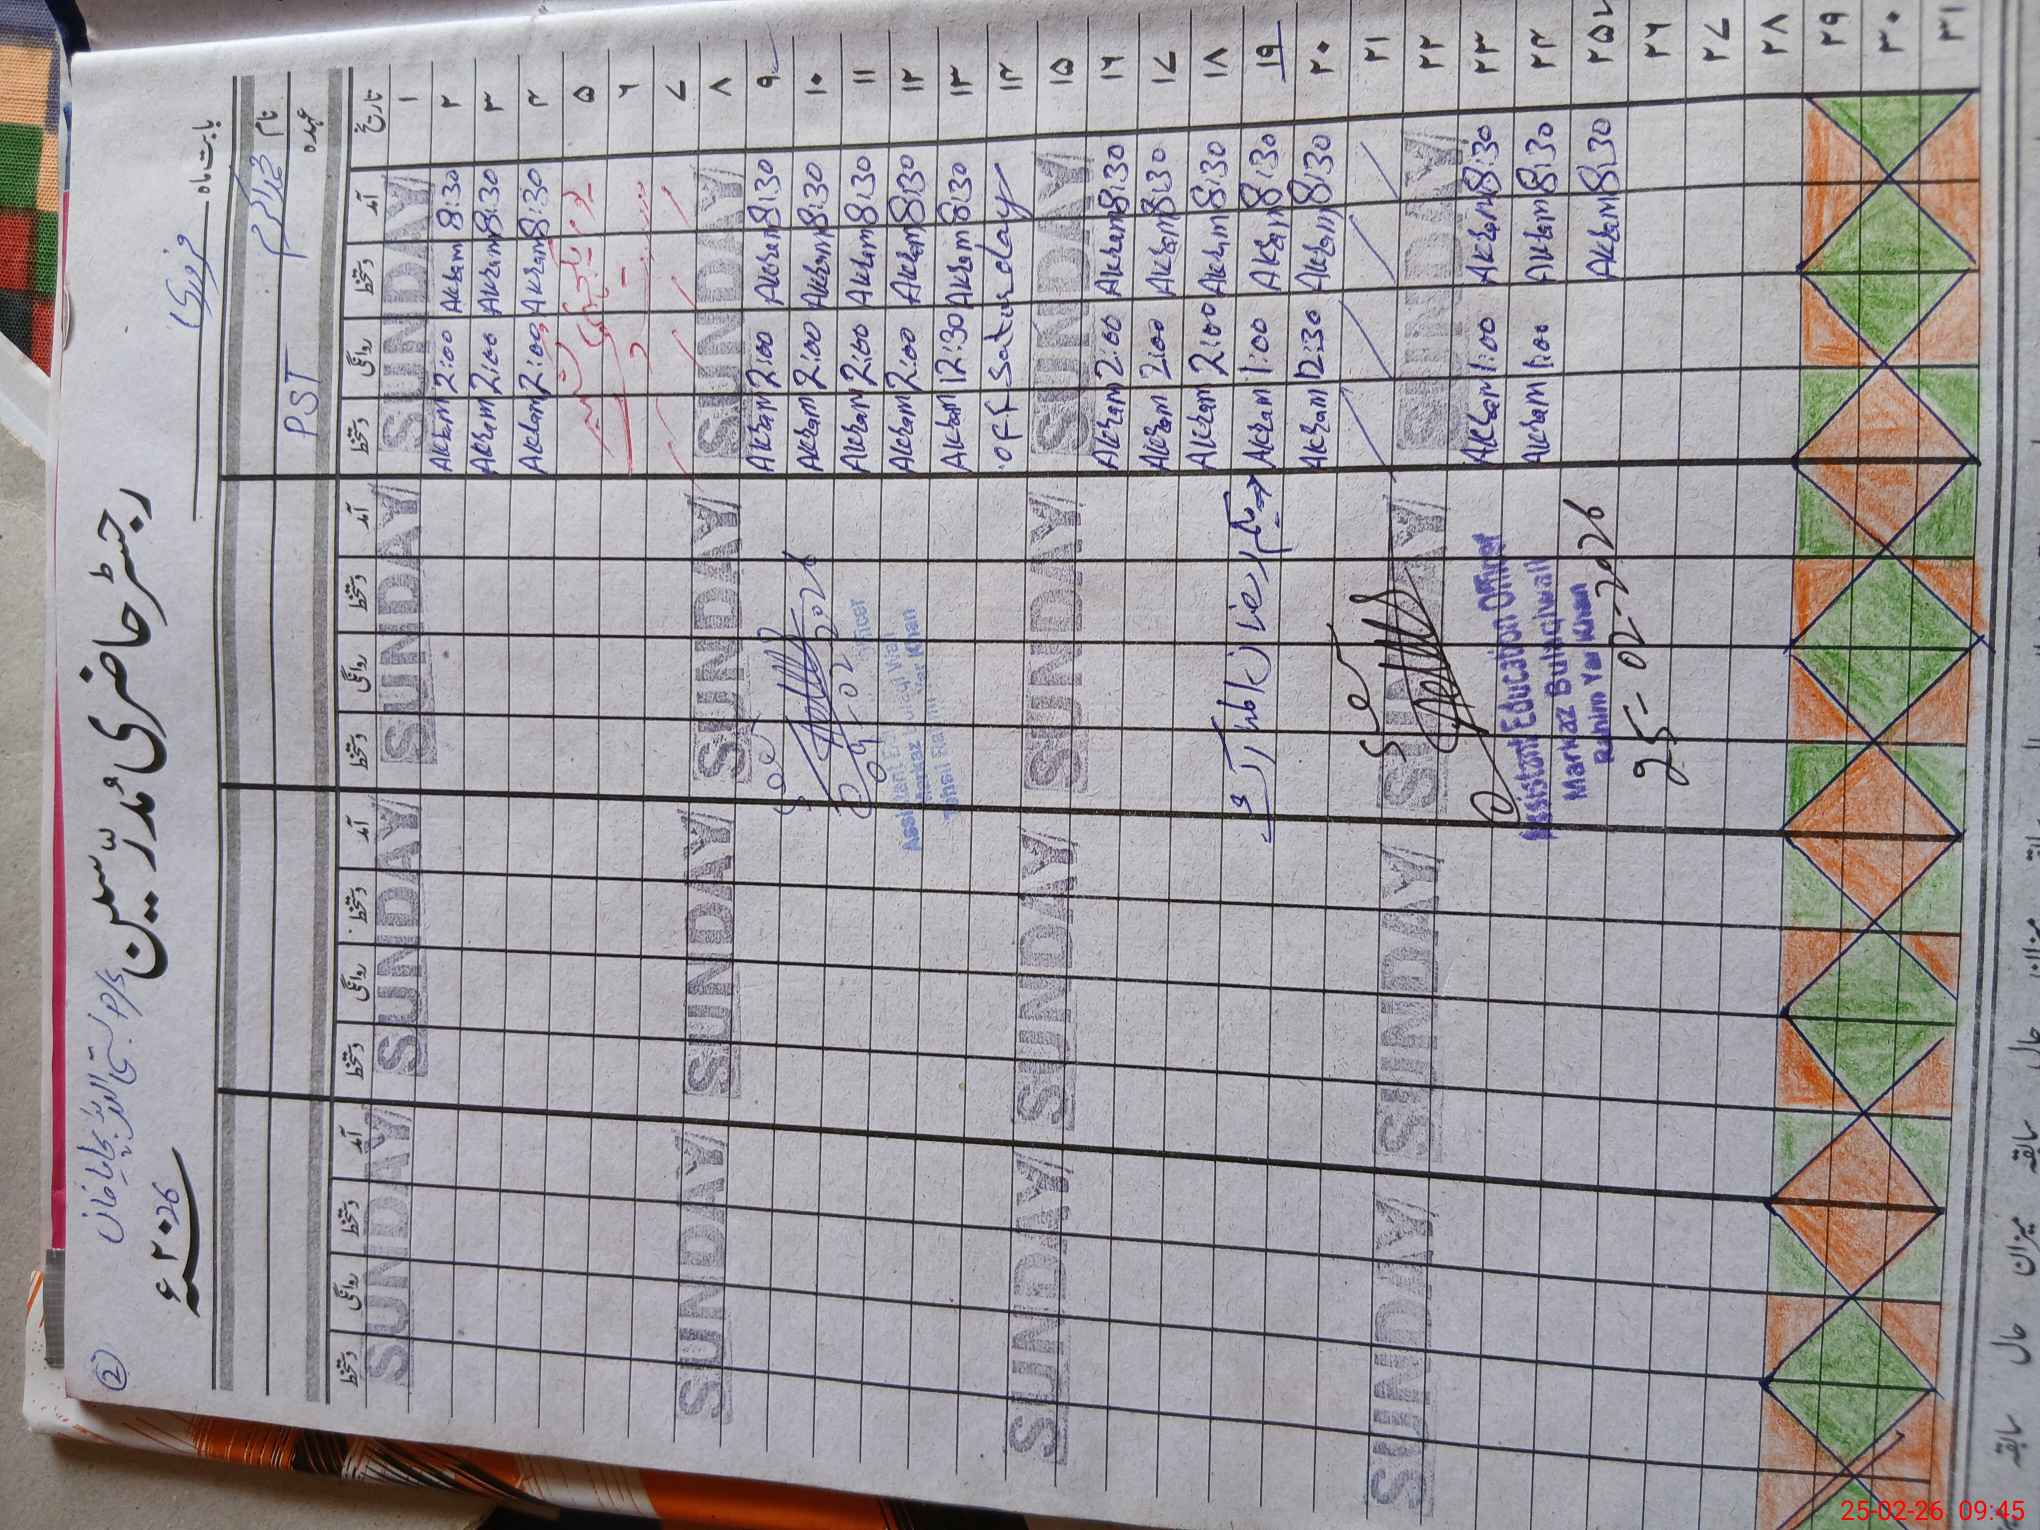 رجسٹر حاضری مُدرّسین
۲۰۲۶ء
بابت ماہ فروری
2
P/S بستی
نام محمد اکرم
عہدہ PST
تاریخ آمد دستخط روانگی دستخط آمد دستخط روانگی دستخط آمد دستخط روانگی دستخط آمد دستخط روانگی دستخط
۱ SUNDAY SUNDAY SUNDAY SUNDAY
۲ 8:30 Akram 2:00 Akram
۳ 8:30 Akram 2:00 Akram
۴ 8:30 Akram 2:00 Akram
۵
۶
۷
۸ SUNDAY SUNDAY SUNDAY SUNDAY
۹ 8:30 Akram 2:00 Akram
۱۰ 8:30 Akram 2:00 Akram
۱۱ 8:30 Akram 2:00 Akram
۱۲ 8:30 Akram 2:00 Akram
۱۳ 8:30 Akram 12:30 Akram
۱۴ OFF Saturday
۱۵ SUNDAY SUNDAY SUNDAY SUNDAY
۱۶ 8:30 Akram 2:00 Akram
۱۷ 8:30 Akram 2:00 Akram
۱۸ 8:30 Akram 2:00 Akram
۱۹ 8:30 Akram 1:00 Akram
۲۰ 8:30 Akram 12:30 Akram
۲۱
۲۲ SUNDAY SUNDAY SUNDAY SUNDAY
۲۳ 8:30 Akram 1:00 Akram
۲۴ 8:30 Akram 1:00 Akram
۲۵ 8:30 Akram
۲۶
۲۷
۲۸
۲۹
۳۰
۳۱
See
09-02-2026
Assistant Officer
Markaz
Tehsil Rahim Yar Khan
See
Assistant Education Officer
Markaz
Rahim Yar Khan
25-02-2026
سابقہ حال میزان سابقہ حال میزان
25-02-26 09:45